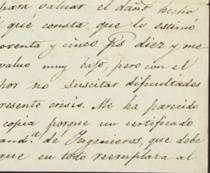 para valuar el daño hecho
que consta que lo estimo
orenta y cinco p$ diez y me
valuo muy bajo, pero con el
por no suscitar dificultades
resente crisis. Me ha parecido
copia porque un certificado
and.te de Ingenieros, que debe
que en todo reemplazara al